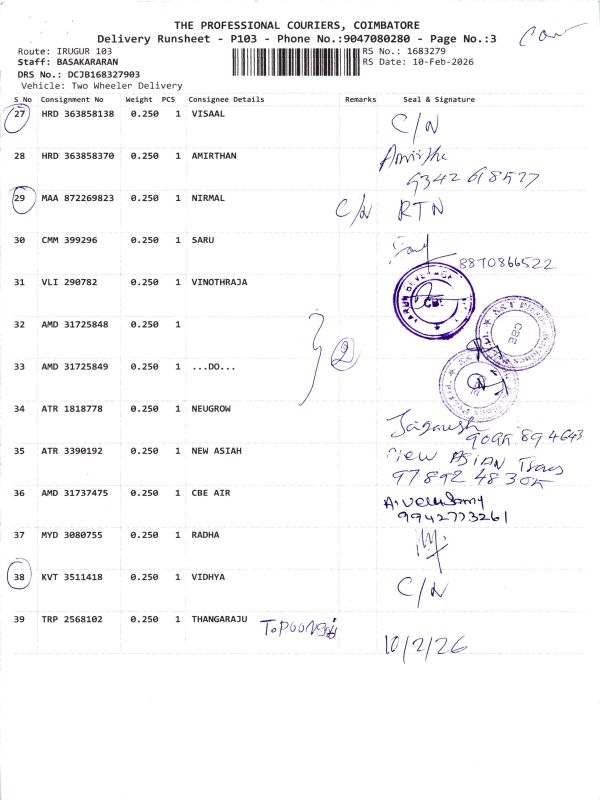 THE PROFESSIONAL COURIERS, COIMBATORE
Delivery Runsheet - P103 - Phone No.:9047080280 - Page No.:3
Route: IRUGUR 103
RS No.: 1683279
Staff: BASAKARARAN
RS Date: 10-Feb-2026
DRS No.: DCJB168327903
Vehicle: Two Wheeler Delivery
S No Consignment No Weight PCS Consignee Details Remarks Seal & Signature
27 HRD 363858138 0.250 1 VISAAL C/N
28 HRD 363858370 0.250 1 AMIRTHAN
9342618577
29 MAA 872269823 0.250 1 NIRMAL C/N RTN
30 CMM 399296 0.250 1 SARU
8870866522
31 VLI 290782 0.250 1 VINOTHRAJA
CBE
32 AMD 31725848 0.250 1
2
CBE
33 AMD 31725849 0.250 1 ...DO...
34 ATR 1818778 0.250 1 NEUGROW Jaganesh
35 ATR 3390192 0.250 1 NEW ASIAH New ASIAN
36 AMD 31737475 0.250 1 CBE AIR
9942773261
37 MYD 3080755 0.250 1 RADHA
38 KVT 3511418 0.250 1 VIDHYA C/N
39 TRP 2568102 0.250 1 THANGARAJU
10/2/26